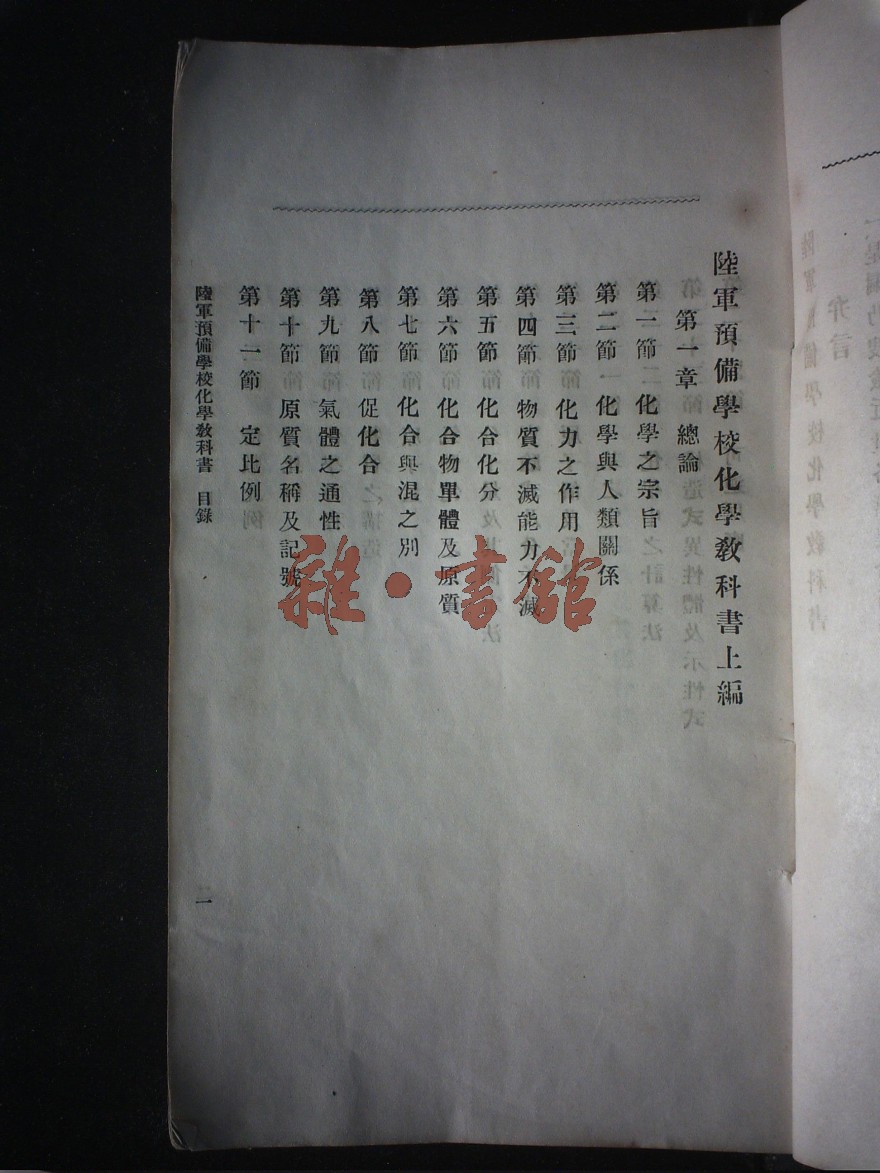 陸軍預備學校化學敎科書上編
第一章 總論
第一節 化學之宗旨
第二節 化學與人類關係
第三節 化力之作用
第四節 物質不滅能力不滅
第五節 化合化分
第六節 化合物單體及原質
第七節 化合與混之別
第八節 促化合
第九節 氣體之通性
第十節 原質名稱及記號
第十一節 定比例
陸軍預備學校化學敎科書 目錄
一
雜·書館